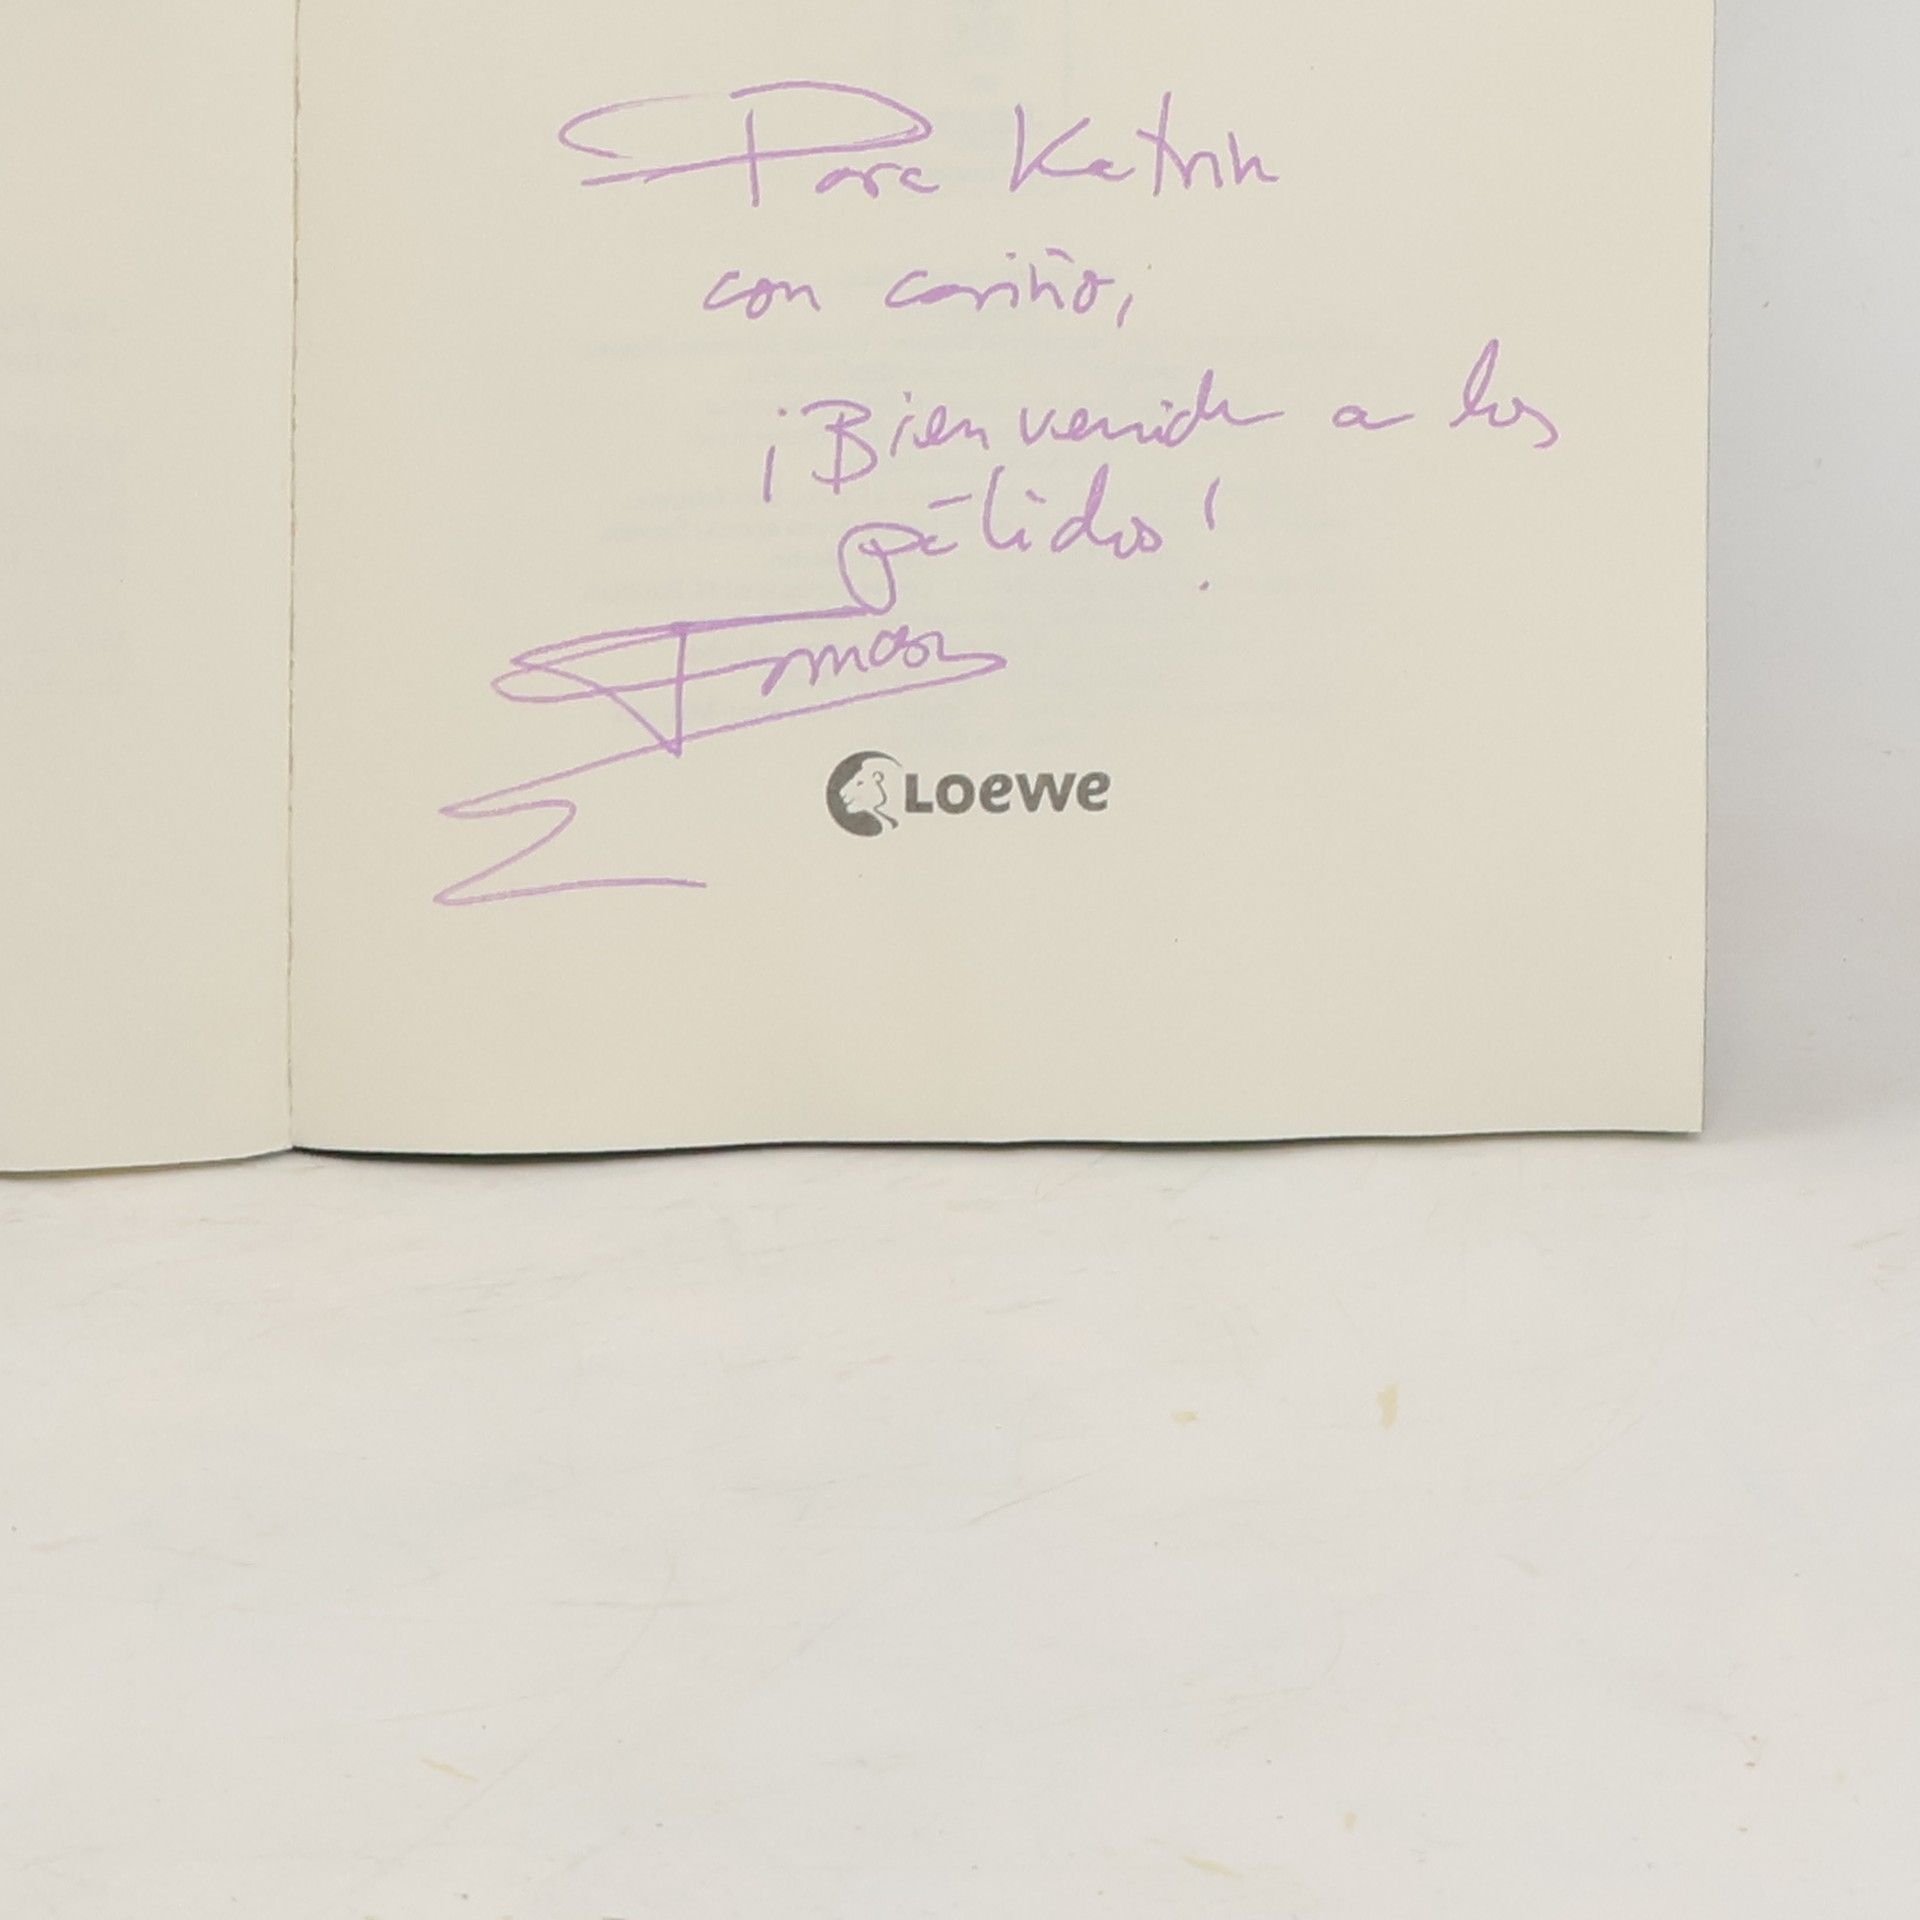 Para Katrin
con cariño,
¡Bienvenida a los
pálidos!
LOEWE